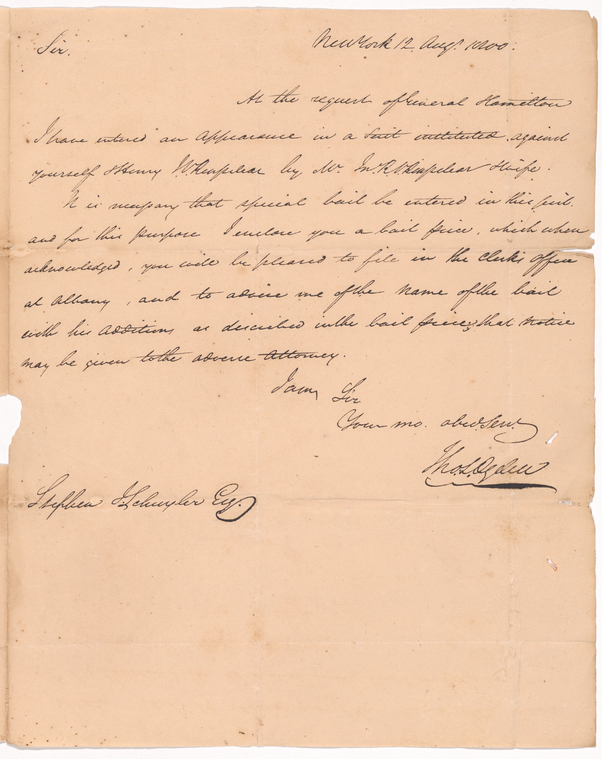 Sir.
New York 12. Augt. 1800.
At the request of General Hamilton
I have entered an appearance in a suit instituted against
yourself & Henry by Mr. Jn. R & Wife.
It is necessary that special bail be entered in this suit
and for this purpose I enclose you a bail piece, which when
acknowledged, you will be pleased to file in the Clerks office
at Albany, and to advise me of the name of the bail
with his additions as described in the bail piece, that notice
may be given to the adverse Attorney.
I am, Sir
Your mo. obed Servt
Tho. L. Ogden
Stephen J. Schuyler Esq.